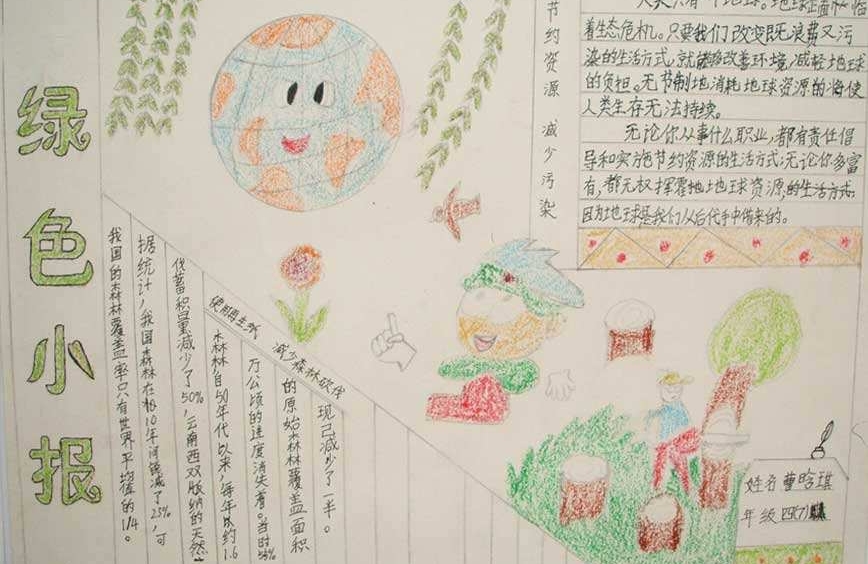 绿色小报
节约资源 减少污染
人类只有一个地球。地球正面临
着生态危机。只要我们改变既浪费又污
染的生活方式,就能够改善环境,减轻地球
的负担。无节制地消耗地球资源的将使
人类生存无法持续。
无论你从事什么职业,都有责任倡
导和实施节约资源的生活方式;无论你多富
有,都无权挥霍地地球资源,的生活方式
因为地球是我们从后代手中借来的。
使用再生纸 减少森林砍伐
我国的森林覆盖率只有世界平均值的1/4。
据统计,我国森林在初10年间锐减了23%,可
伐蓄积量减少了50%,云南西双版纳的天然
森林自50年代以来,每年以约1.6
万公顷的速度消失着。当时55%
的原始森林覆盖面积
现已减少了一半。
姓名 曹晗琪
年级 四(7)